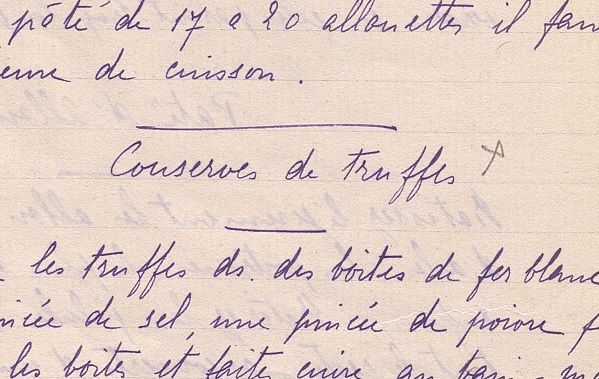 pâté de 17 a 20 allouettes il fau
eure de cuisson.
Conserves de truffes
les truffes ds. des boites de fer blanc
incée de sel, une pincée de poivre f
les boites et faites cuire au bain-ma